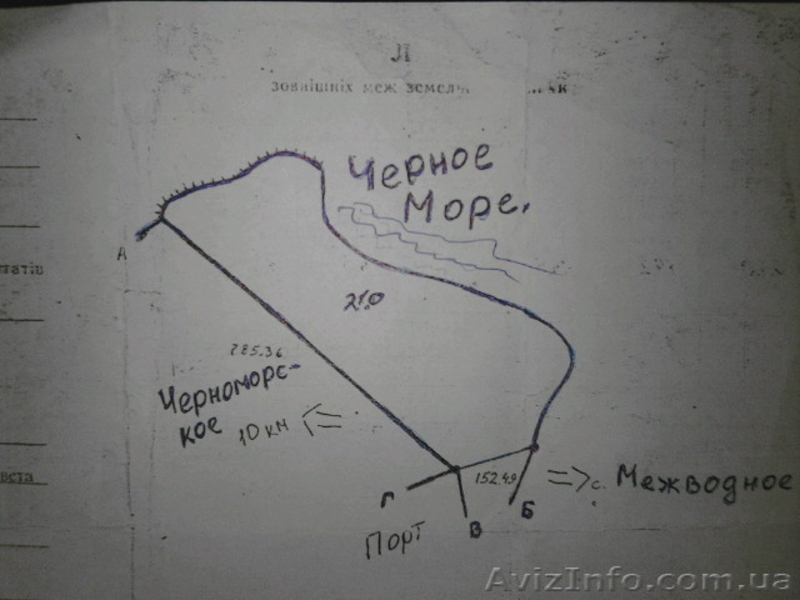 Л
зовнішніх меж
Черное
Море.
татів
А
285.36
Черноморс-
кое 10 км
152.49
с. Межводное
Г
Б
В
Порт
вста
AvizInfo.com.ua